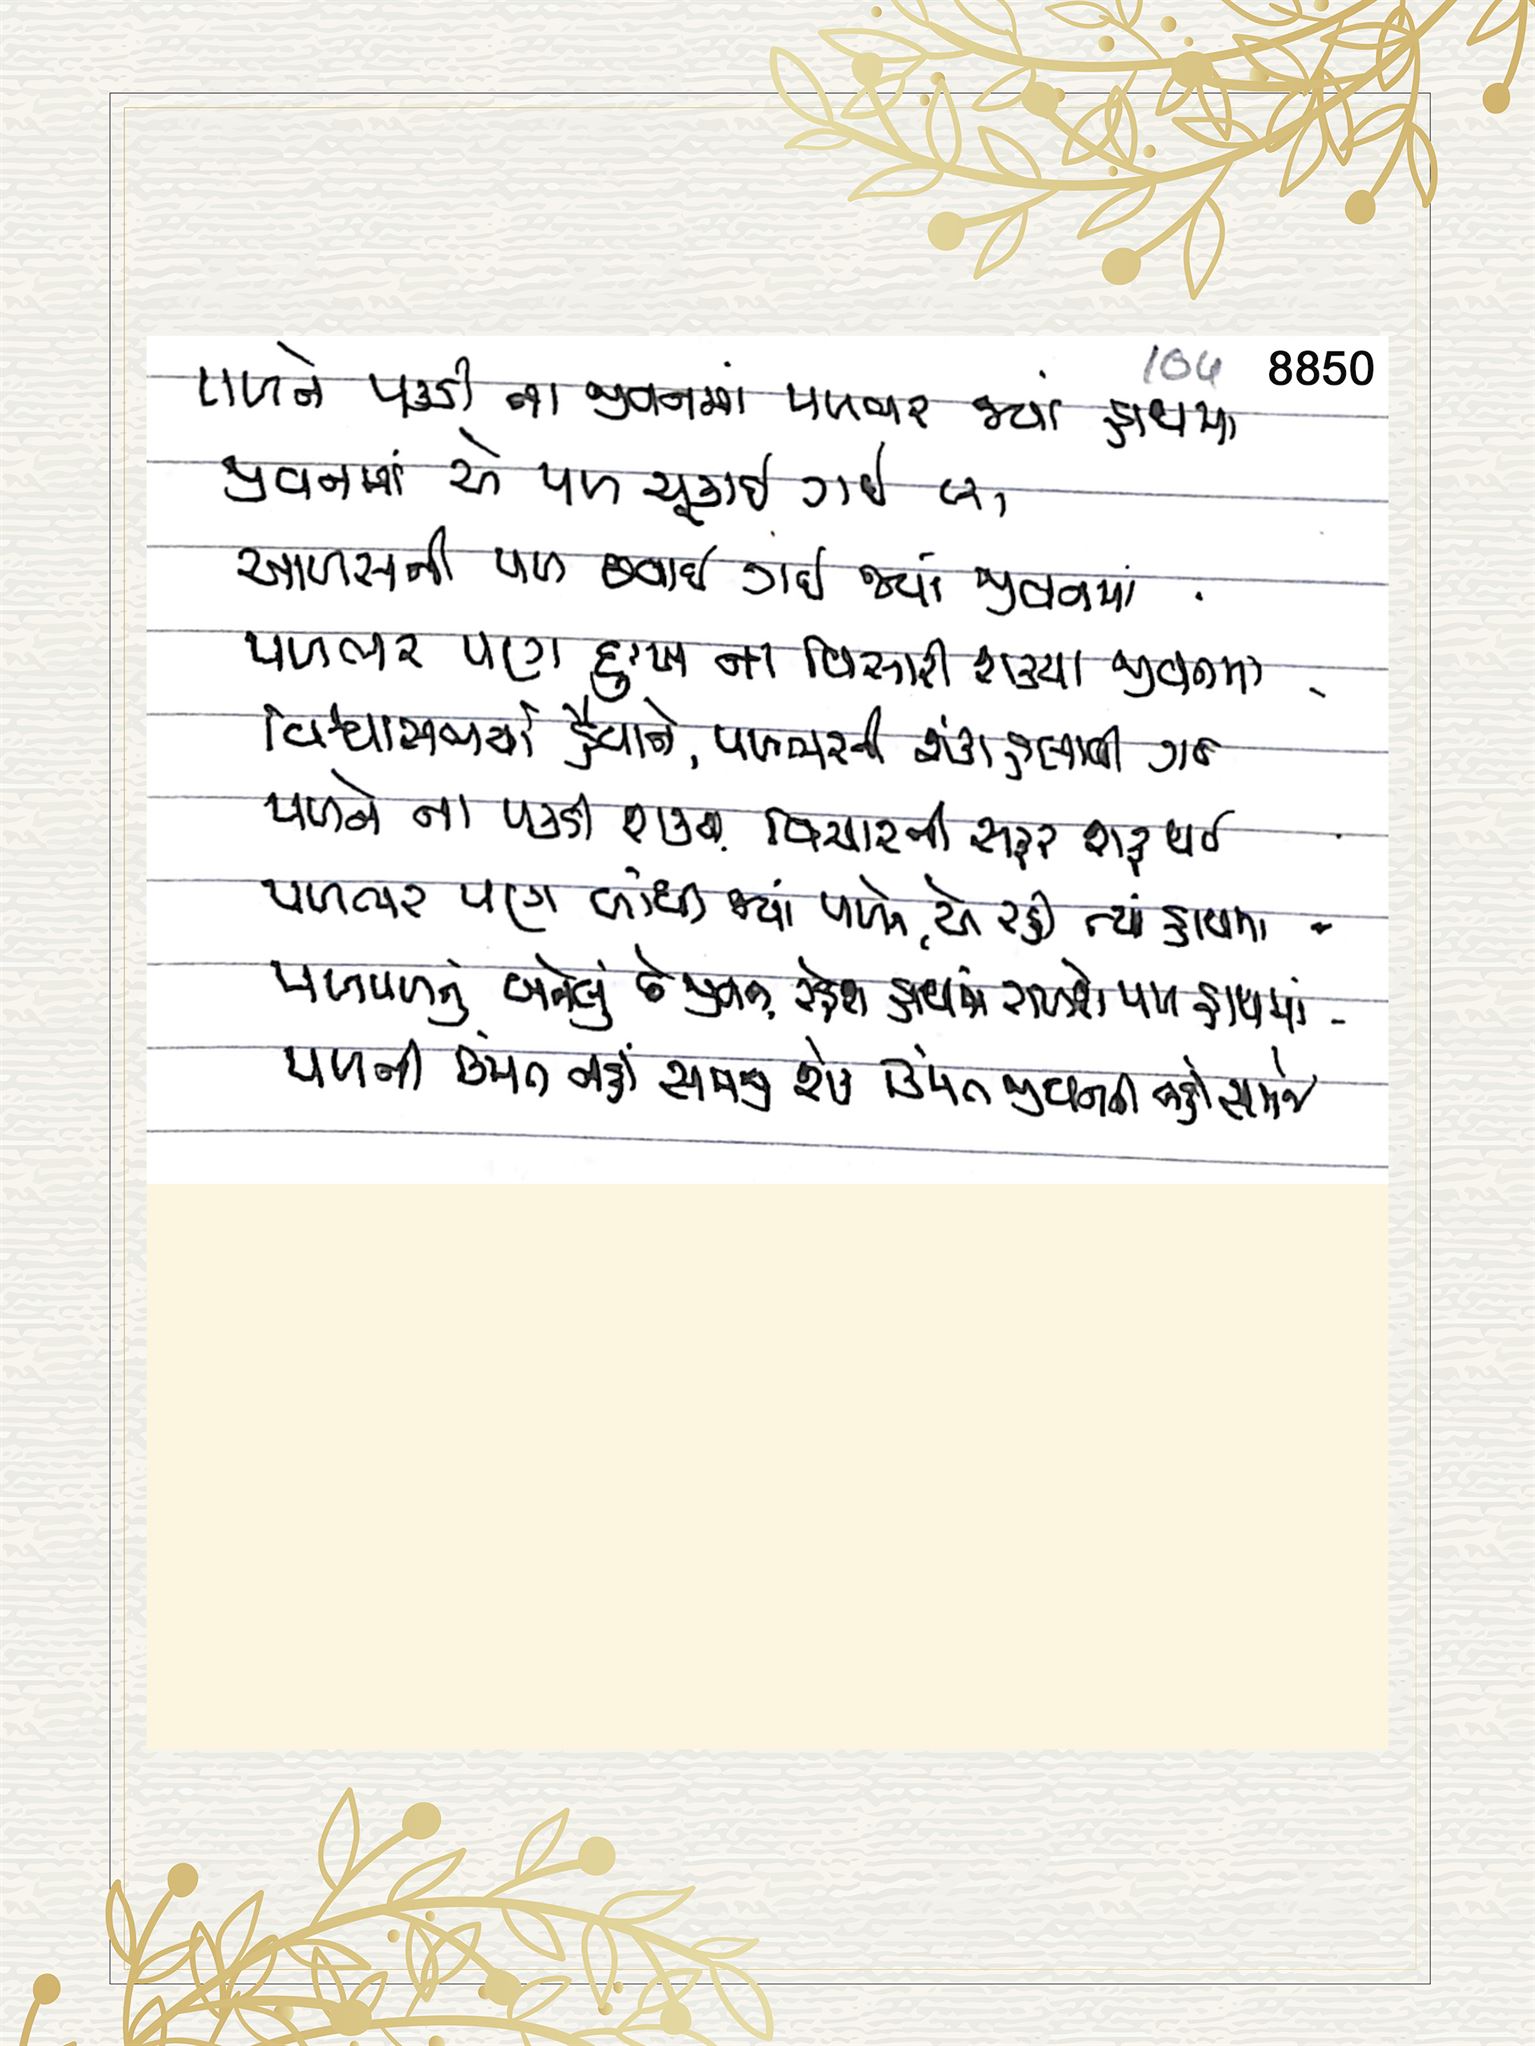 104 8850
પળને પકડી ના જીવનમાં પળભર જ્યાં હાથમાં
જીવનમાં એ પળ ચૂકાઈ ગઈ
આળસની પળ છવાઈ ગઈ જ્યાં જીવનમાં
પળભર પણ દુઃખ ના વિસારી શક્યા જીવનમાં
વિશ્વાસભર્યા હૈયાને, પળભરની શંકા હલાવી ગઈ
પળને ના પકડી શક્યા, વિચારની સફર શરૂ થઈ
પળભર પણ બાંધી જ્યાં પળને, એ રહી ત્યાં હાથમાં
પળપળનું બનેલું છે જીવન, રહેશે હાથમાં પળ હાથમાં
પળની કિંમત નહીં સમજી શકે કિંમત જીવનની નહીં સમજે